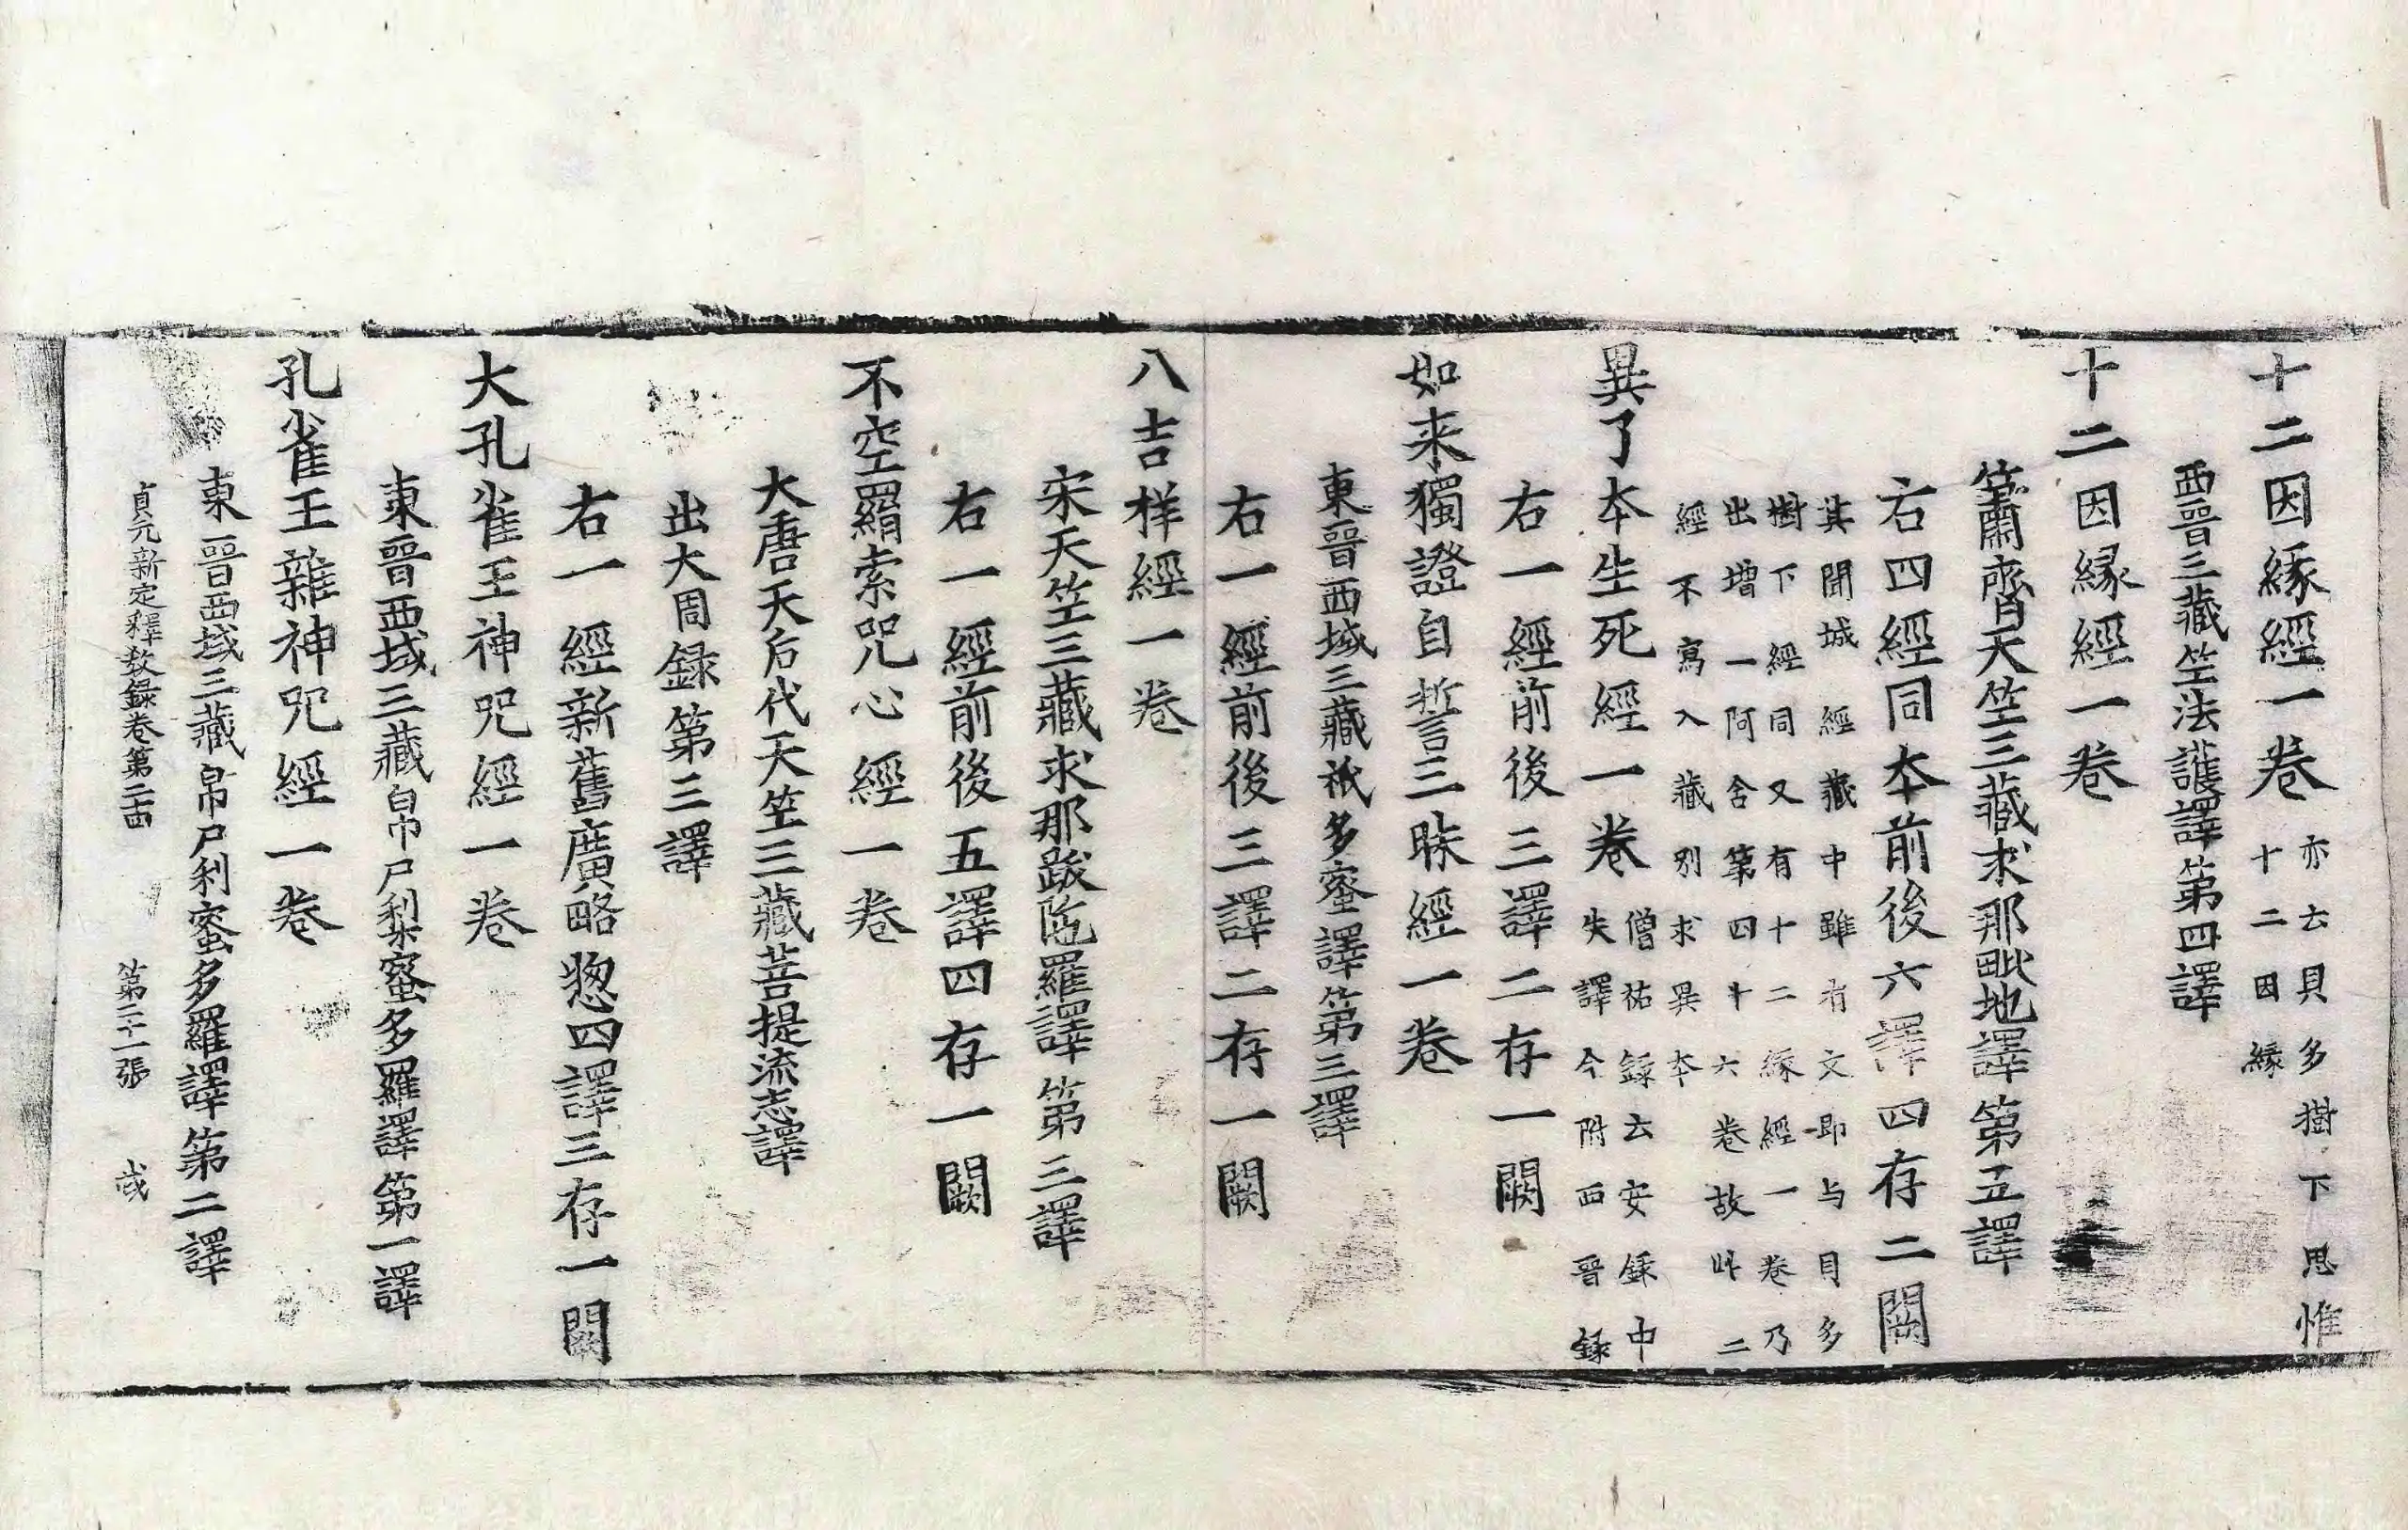 十二因緣經一卷亦云貝多樹下思惟
十二因緣
西晉三藏竺法護譯第四譯
十二因緣經一卷
蕭齊天竺三藏求那毗地譯第五譯
右四經同本前後六譯四存二闕
其聞城經藏中雖有文即与貝多
樹下經同又有十二緣經一卷乃
出增一阿含第四十六卷故此二
經不寫入藏別求異本
異了本生死經一卷僧祐錄云安錄中
失譯今附西晉錄
右一經前後三譯二存一闕
如来獨證自誓三昧經一卷
東晉西域三藏祇多蜜譯第三譯
右一經前後三譯二存一闕
八吉祥經一卷
宋天竺三藏求那跋陁羅譯第三譯
右一經前後五譯四存一闕
不空羂索咒心經一卷
大唐天后代天竺三藏菩提流志譯
出大周録第三譯
右一經新舊廣略惣四譯三存一闕
大孔雀王神咒經一卷
東晉西域三藏帛尸梨蜜多羅譯第一譯
孔雀王雜神咒經一卷
東晉西域三藏帛尸利蜜多羅譯第二譯
貞元新定釋教録卷第二十四 第二十一張